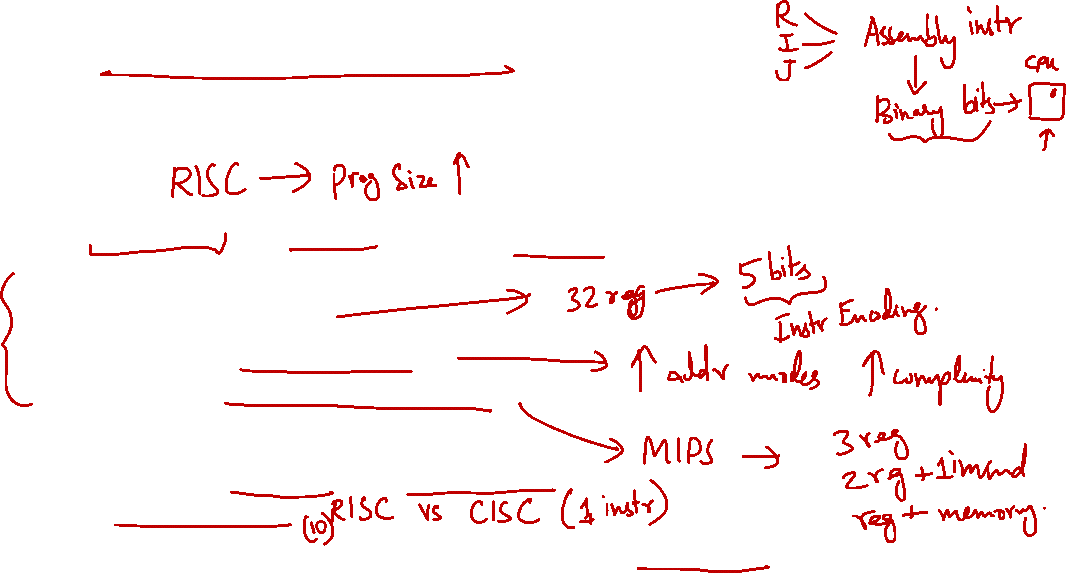 R
I
J
Assembly instr
CPU
Binary bits
RISC → Prog Size ↑
32 reg → 5 bits
Instr Enoding.
↑ addr modes ↑ complexity
MIPS → 3 reg
2 rg + 1 immd
reg + memory.
(10) RISC vs CISC (1 instr)